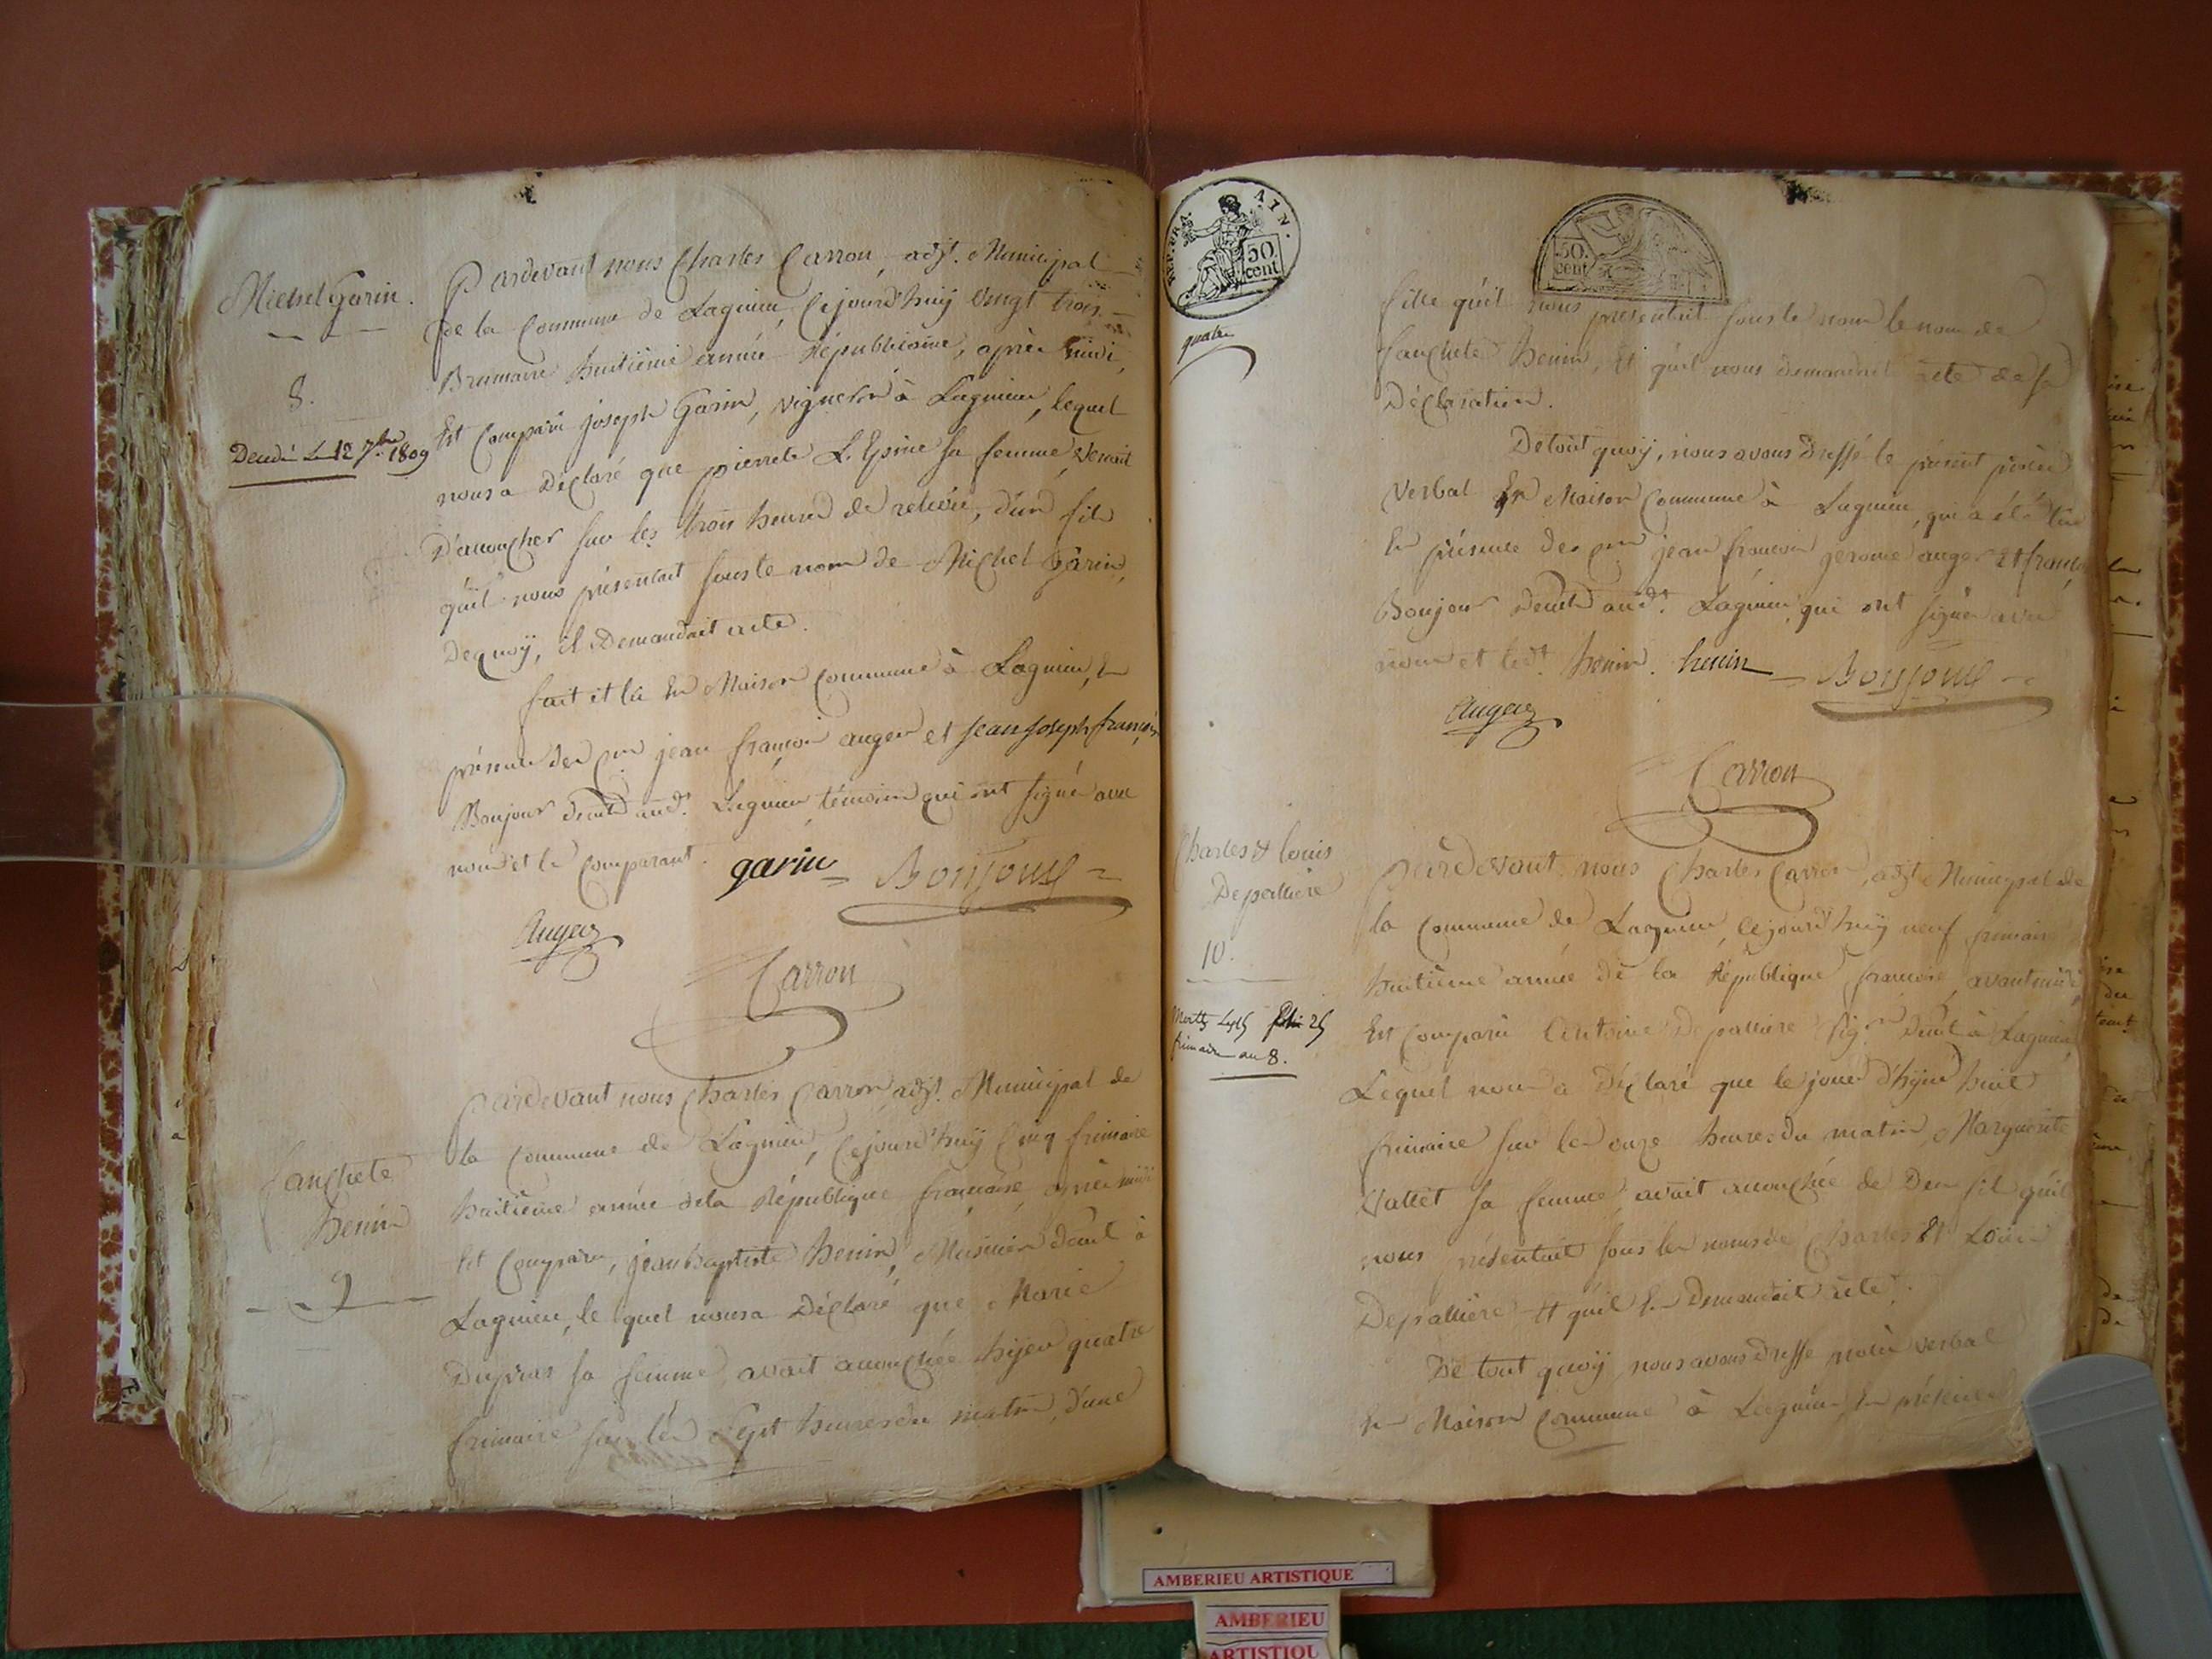 Michel Garin.
8.
Décédé le 12 7bre 1809
Pardevant nous Charles Carron, adjt. Municipal
de la Commune de Lagnieu, Cejourd'huy vingt trois
Brumaire huitième année Républicaine, après midi,
Est Comparu joseph Garin, vigneron à Lagnieu, lequel
nous a Déclaré que pierrete L'Epine sa femme, venait
D'accoucher sur les trois heures de relevée, d'un fils
qu'il nous présentait sous le nom de Michel Garin,
Dequoÿ, il Demandait acte.
fait et lû En Maison Commune à Lagnieu, En
présence des cns jean françois auger et jean joseph françois
Bonjour demt aud.t Lagnieu témoins qui ont signé avec
nous et le Comparant.
garin Bonjour
Auger
Carron
fanchete
henin
9
Pardevant nous Charles Carron adjt. Municipal de
la Commune de Lagnieu, Cejourd'huÿ Cinq frimaire
huitième année dela République française, après midi
Est Comparu, jean baptiste henin, Demt à
Lagnieu, le quel nous a Déclaré que Marie
Dupras sa femme, avait accouchée hÿer quatre
frimaire sur les Sept heures du matin, d'une
REP. FRA. AIN.
50.
cent
50.
cent
fille qu'il nous présentait sous le nom le nom de
fanchete henin, Et qu'il nous demandait acte de sa
Déclaration.
Detout quoÿ, nous avons dressé le présent procès
verbal En Maison Commune à Lagnieu, qui a été lû
En présence des cns jean françois jerome auger Et
Bonjour Demt aud.t Lagnieu, qui ont signé avec
nous et led.t henin. henin Bonjour
Auger
Carron
Charles & louis
Depalliere
10.
Morts
frimaire an 8.
Pardevant nous Charles Carron, adjt. Municipal de
la Commune de Lagnieu, Cejourd'huÿ neuf frimaire
huitième année de la République française, avant midi,
Est Comparu Depalliere Demt à Lagnieu,
Lequel nous a Déclaré que le jour d'hÿer huit
frimaire sur les onze heures du matin, Marguerite
Vallet sa femme avait accouchée de Deux fils qu'il
nous présentait sous les noms de Charles Et Louis
Depalliere Et qu'il En Demandait acte.
De tout quoÿ nous avons dressé procès verbal
En Maison Commune à Lagnieu, En présence
AMBERIEU ARTISTIQUE
AMBERIEU